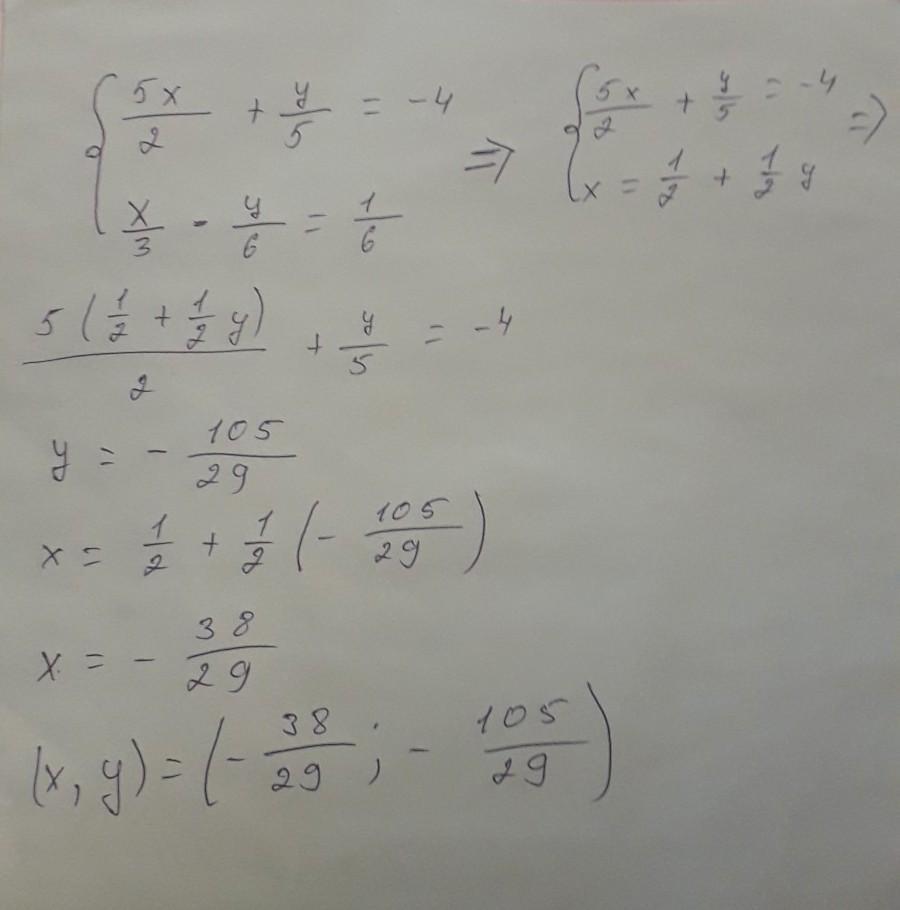 5x/2 + y/5 = -4 ⇒ 5x/2 + y/5 = -4 ⇒
x/3 - y/6 = 1/6 x = 1/2 + 1/2 y
5(1/2 + 1/2 y)/2 + y/5 = -4
y = - 105/29
x = 1/2 + 1/2 (- 105/29)
x = - 38/29
(x, y) = (- 38/29 ; - 105/29)